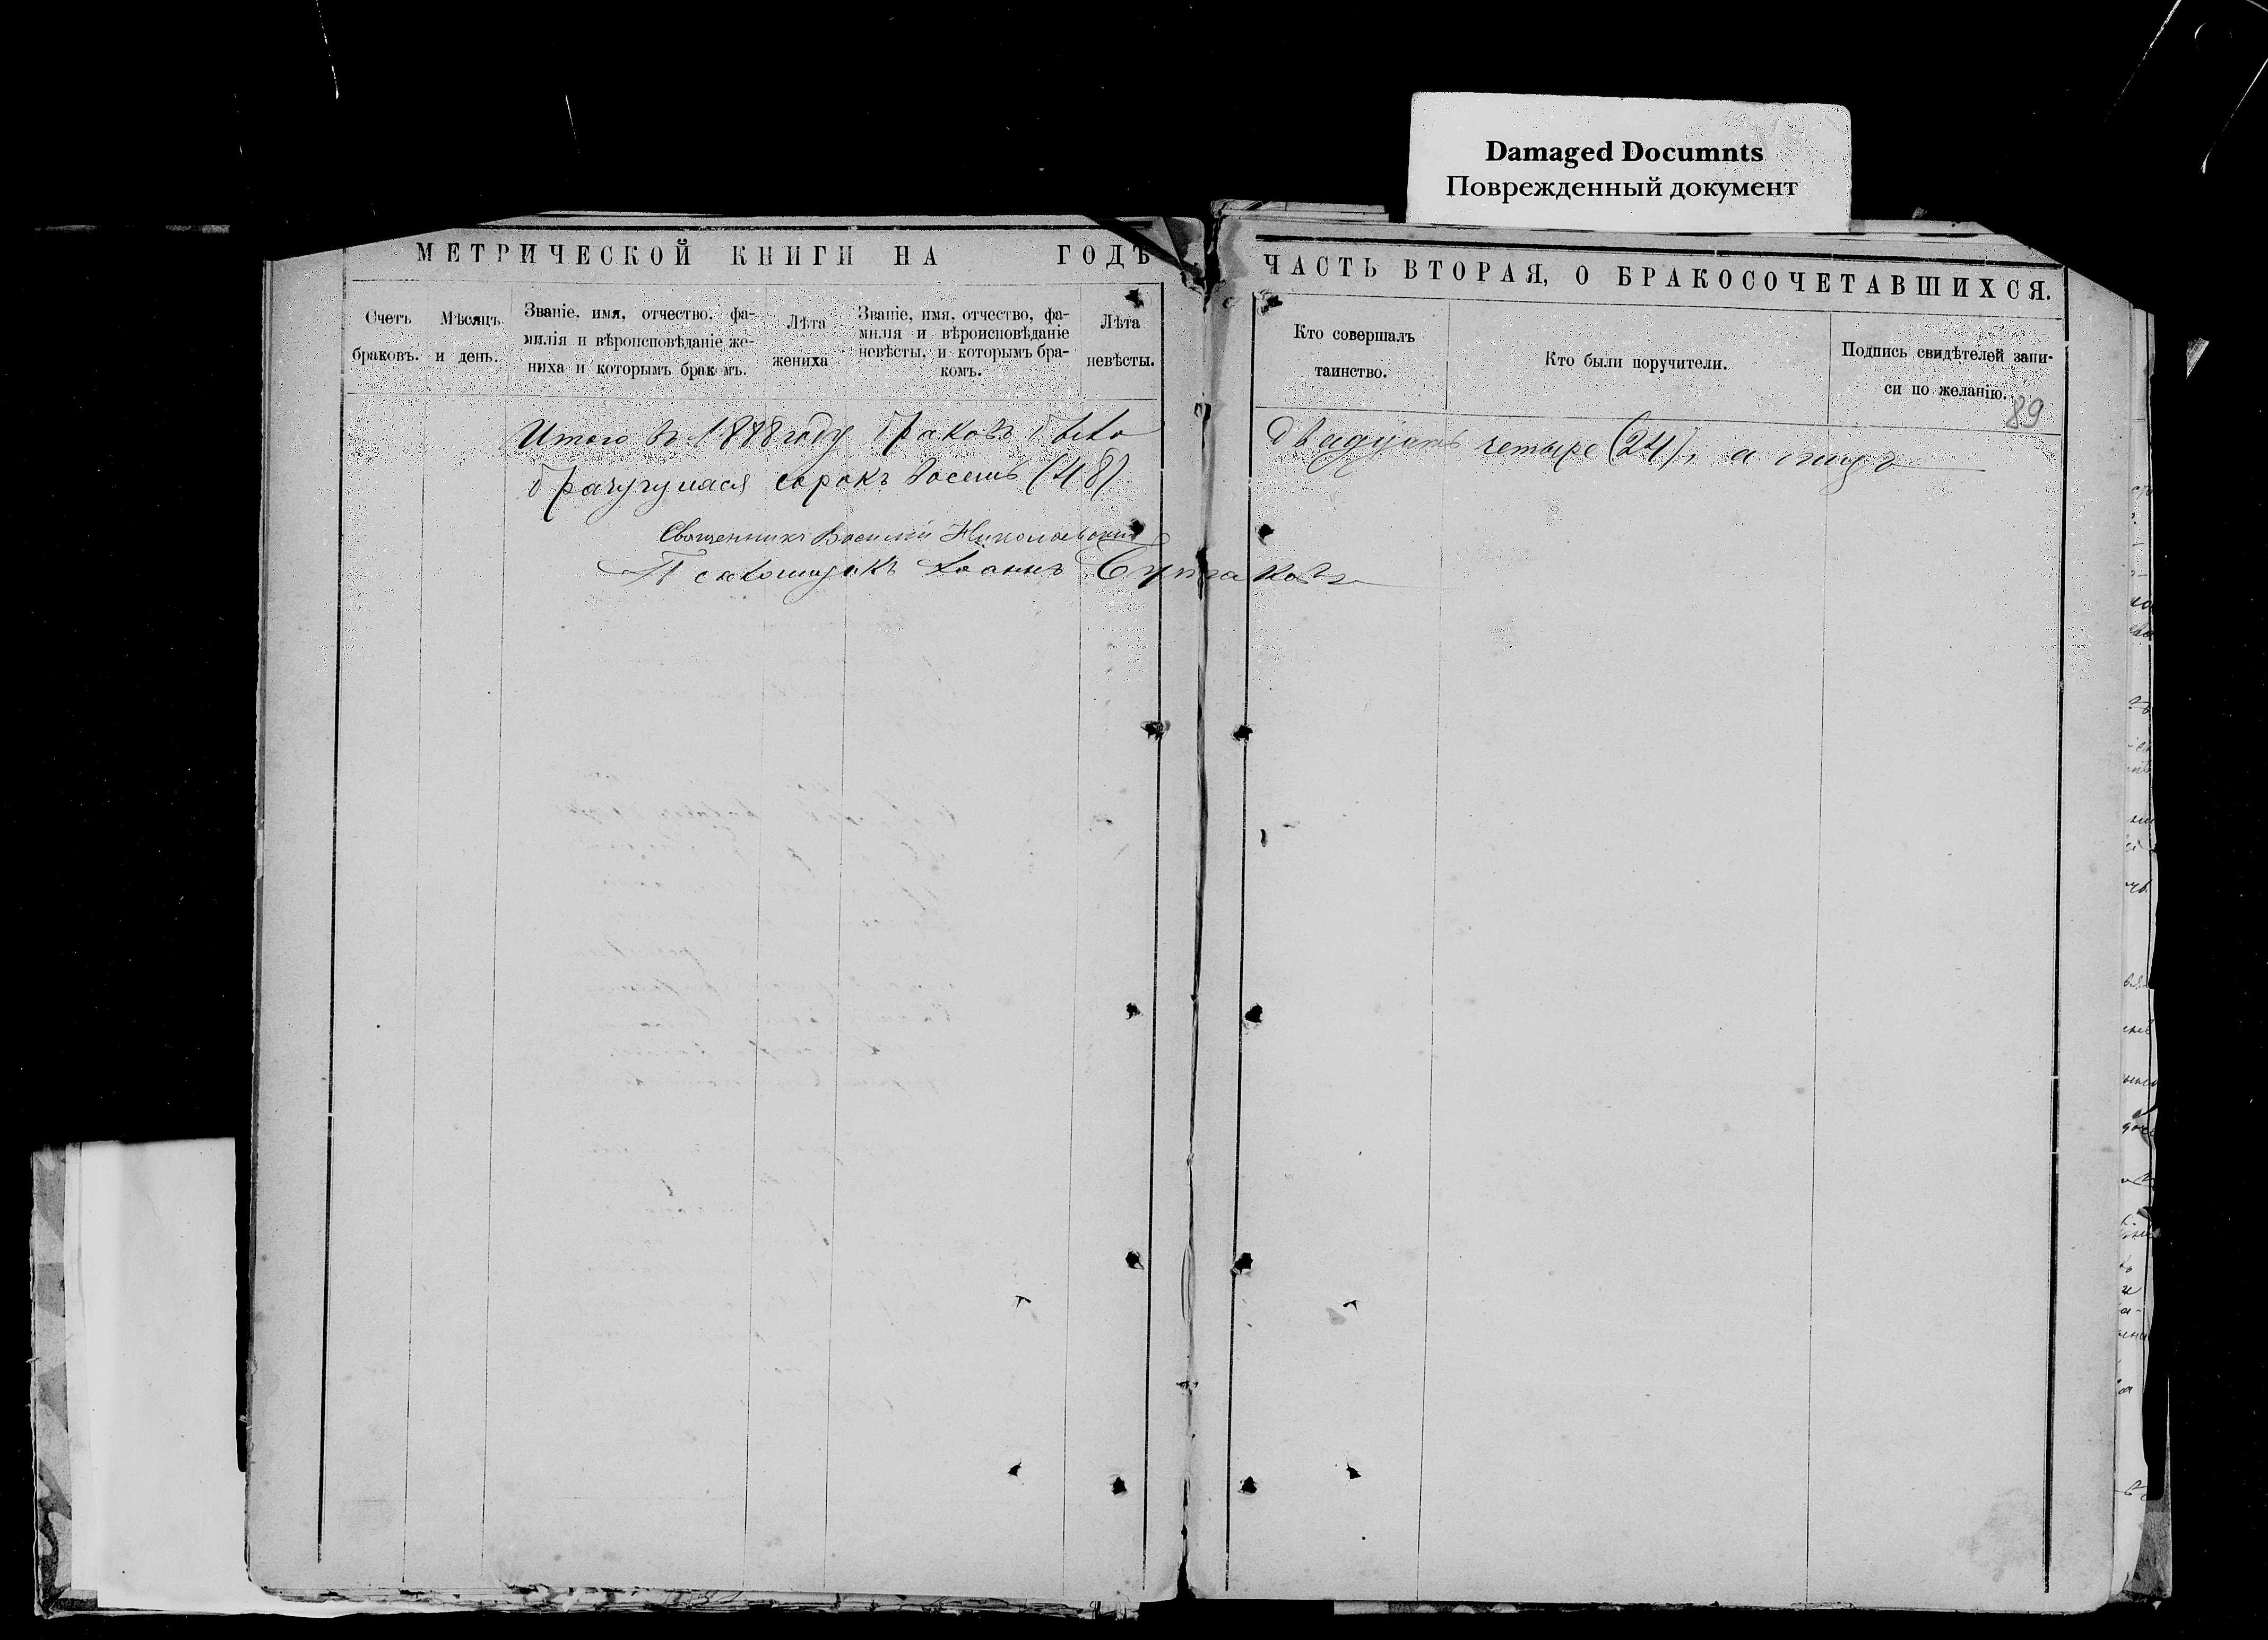 Damaged Documnts
Поврежденный документ
МЕТРИЧЕСКОЙ КНИГИ НА ГОДЪ
Счетъ браковъ.
Мѣсяцъ и день.
Званіе, имя, отчество, фа-
милія и вѣроисповѣданіе же-
ниха и которымъ бракомъ.
Лѣта
жениха
Званіе, имя, отчество, фа-
милія и вѣроисповѣданіе
невѣсты, и которымъ бра-
комъ.
Лѣта
невѣсты.
Итого въ 1888 году браковъ было
брачущихся сорокъ восемь (48).
Священникъ Василій Николаевскій
Псаломщикъ Іоаннъ
ЧАСТЬ ВТОРАЯ, О БРАКОСОЧЕТАВШИХСЯ.
Кто совершалъ
таинство.
Кто были поручители.
Подпись свидѣтелей запи-
си по желанію.
89
двадцать четыре (24), а лицъ